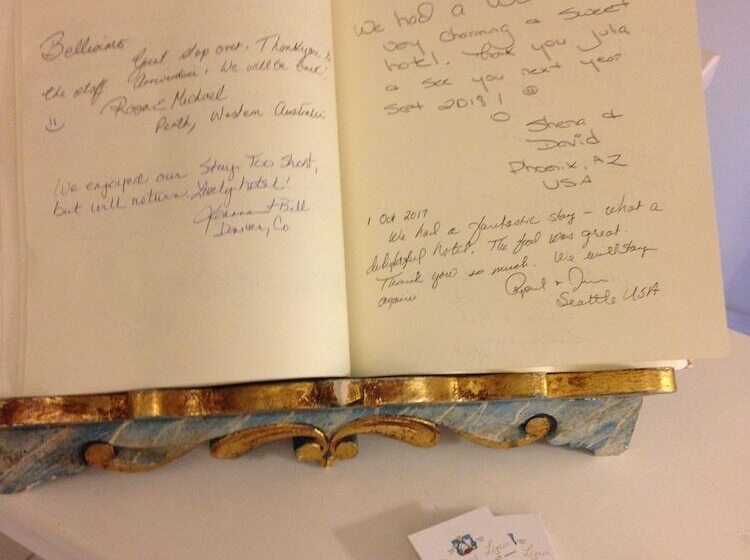 Bellissimo
Great stop over. Thank you to
the staff
We will be back!
Rosa & Michael
Perth, Western Australia
We enjoyed our Stay. Too Short,
but will return, Lovely hotel!
& Bill
Denver, Co
We had a
very charming & sweet
hotel. Thank you Julia
& see you next year
Sept 2018!
Shera &
David
Phoenix, AZ
USA
1 Oct 2017
We had a fantastic stay - what a
delightful hotel. The food was great.
Thank you so much. We will stay
again
+
Seattle USA